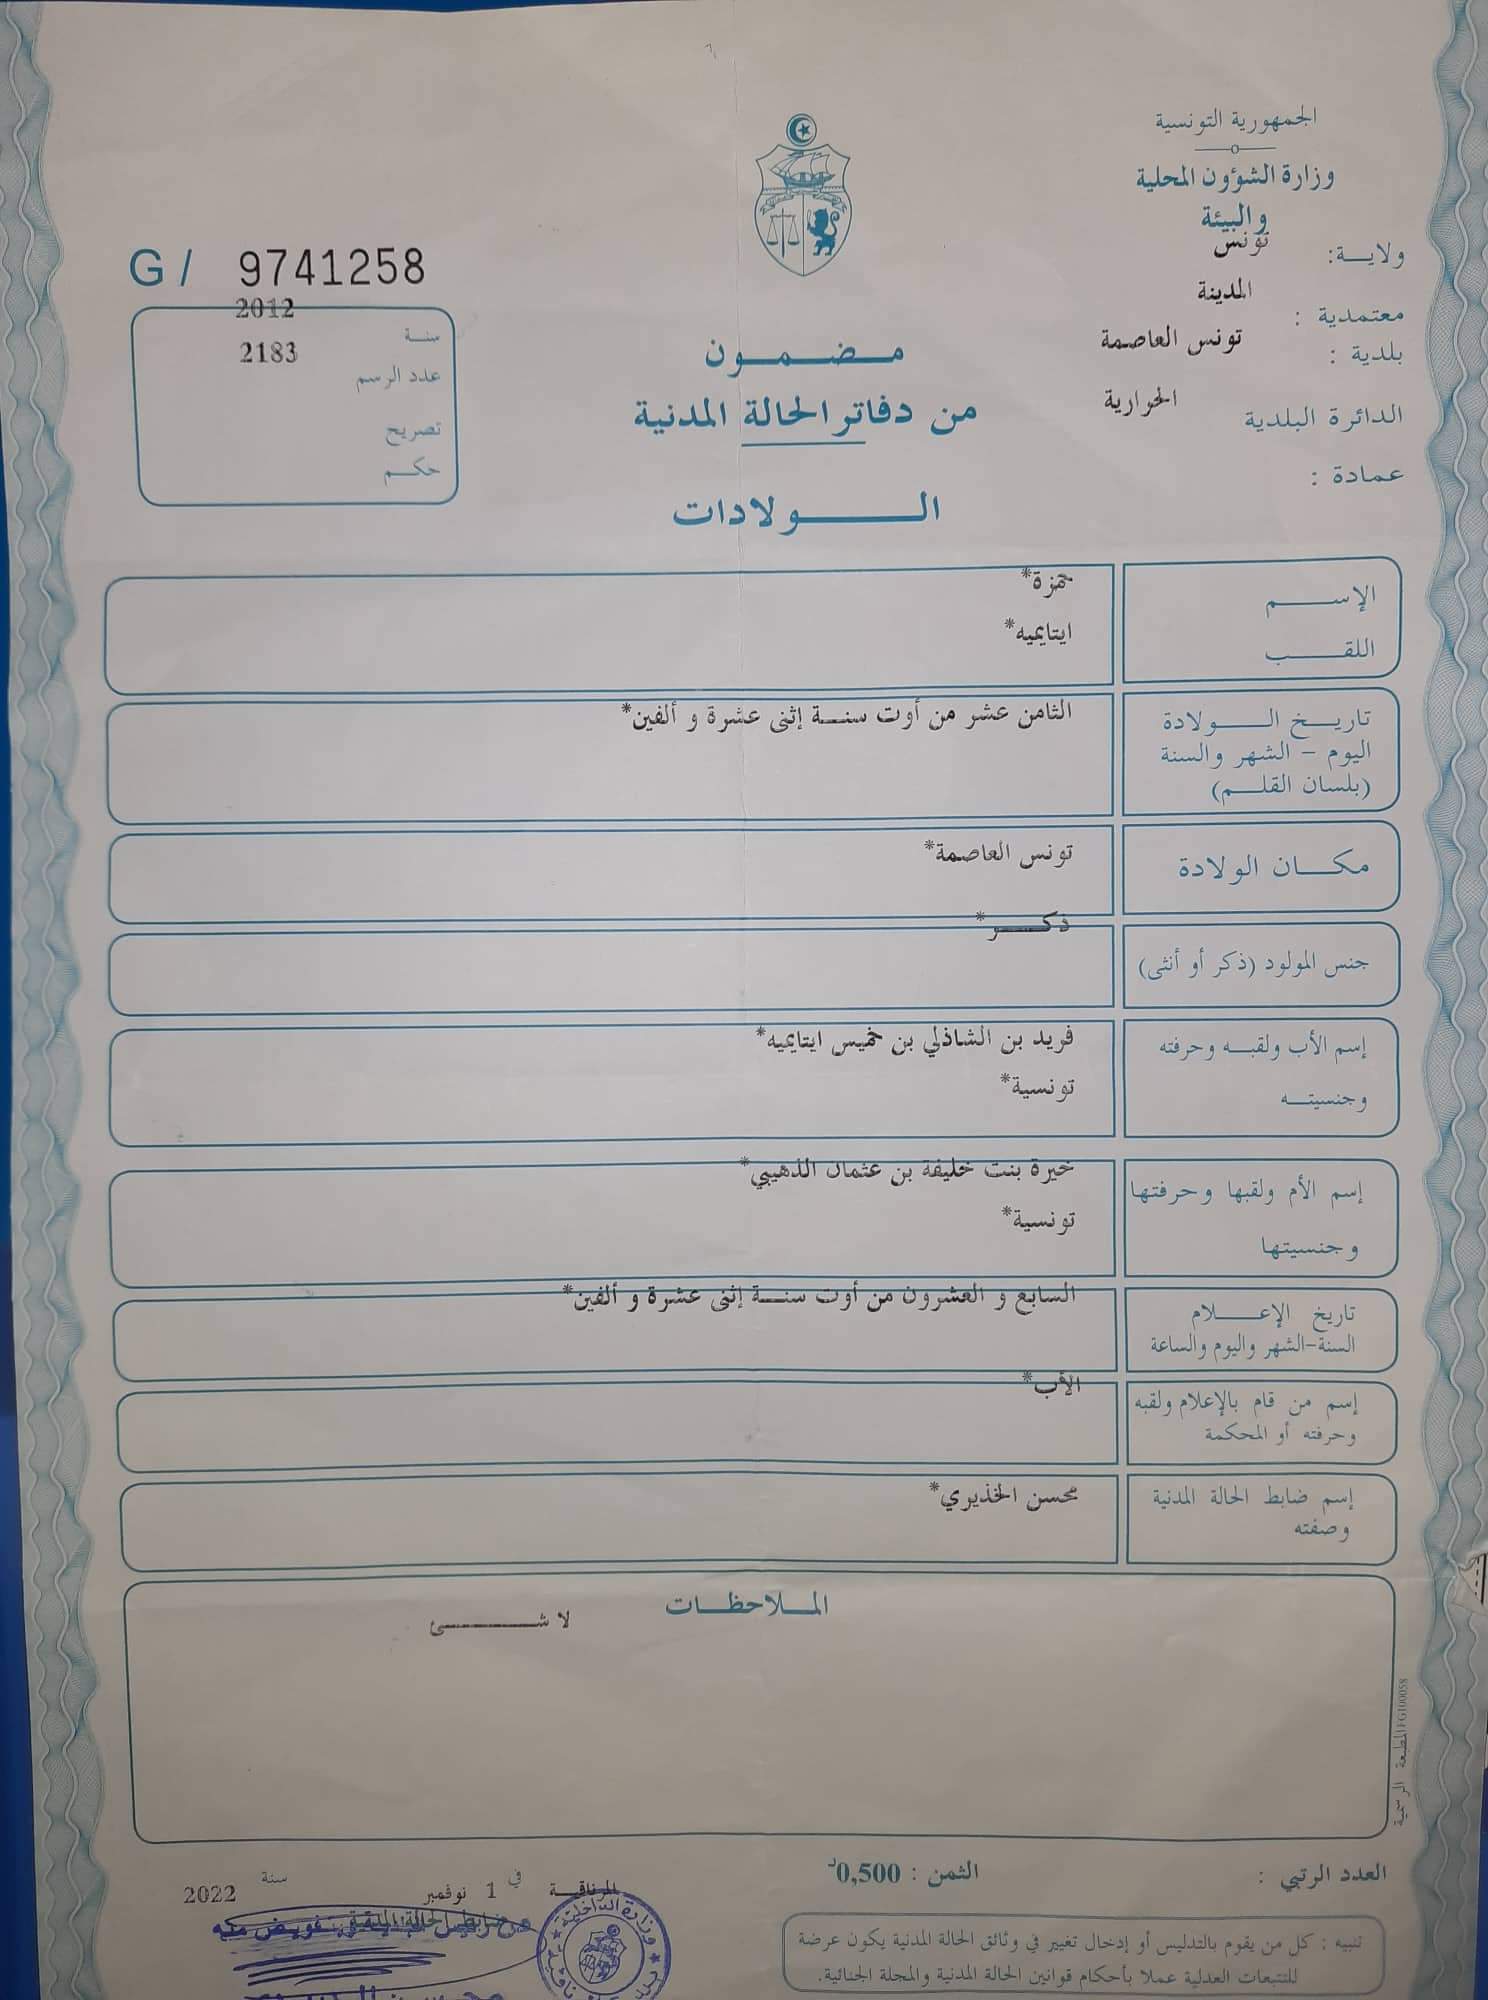 الجمهورية التونسية
وزارة الشؤون المحلية
والبيئة
ولايـــة: تونس
معتمدية : المدينة
بلدية : تونس العاصمة
الدائرة البلدية الحرارية
عمادة :
G / 9741258
سنة 2012
عدد الرسم 2183
تصريح
حكم
مضمون
من دفاتر الحالة المدنية
الولادات
الإسم حمزة*
اللقب ايتايميه*
تاريخ الولادة الثامن عشر من أوت سنة إثنى عشرة و ألفين*
اليوم - الشهر والسنة
(بلسان القلم)
مكان الولادة تونس العاصمة*
جنس المولود (ذكر أو أنثى) ذكر*
إسم الأب ولقبه وحرفته فريد بن الشاذلي بن خميس ايتايميه*
وجنسيته تونسية*
إسم الأم ولقبها وحرفتها خيرة بنت خليفة بن عثمان الذهيبي*
وجنسيتها تونسية*
تاريخ الإعلام السابع و العشرون من أوت سنة إثنى عشرة و ألفين*
السنة-الشهر واليوم والساعة
إسم من قام بالإعلام ولقبه الأب*
وحرفته أو المحكمة
إسم ضابط الحالة المدنية محسن الخذيري*
وصفته
الملاحظات
لا شئ
المطبعة الرسمية FG100058
العدد الرتبي :
الثمن : 0,500د
المرناقية في 1 نوفمبر سنة 2022
تنبيه : كل من يقوم بالتدليس أو إدخال تغيير في وثائق الحالة المدنية يكون عرضة
للتتبعات العدلية عملا بأحكام قوانين الحالة المدنية والمجلة الجنائية.
وزارة الداخلية